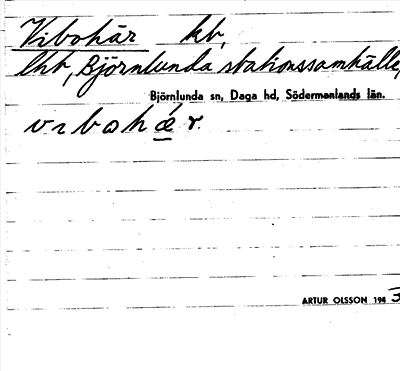 Vibohär kb,
lht, Björnlunda stationssamhälle,
Björnlunda sn, Daga hd, Södermanlands län.
v ı b o h ǽ r.
ARTUR OLSSON 194 3